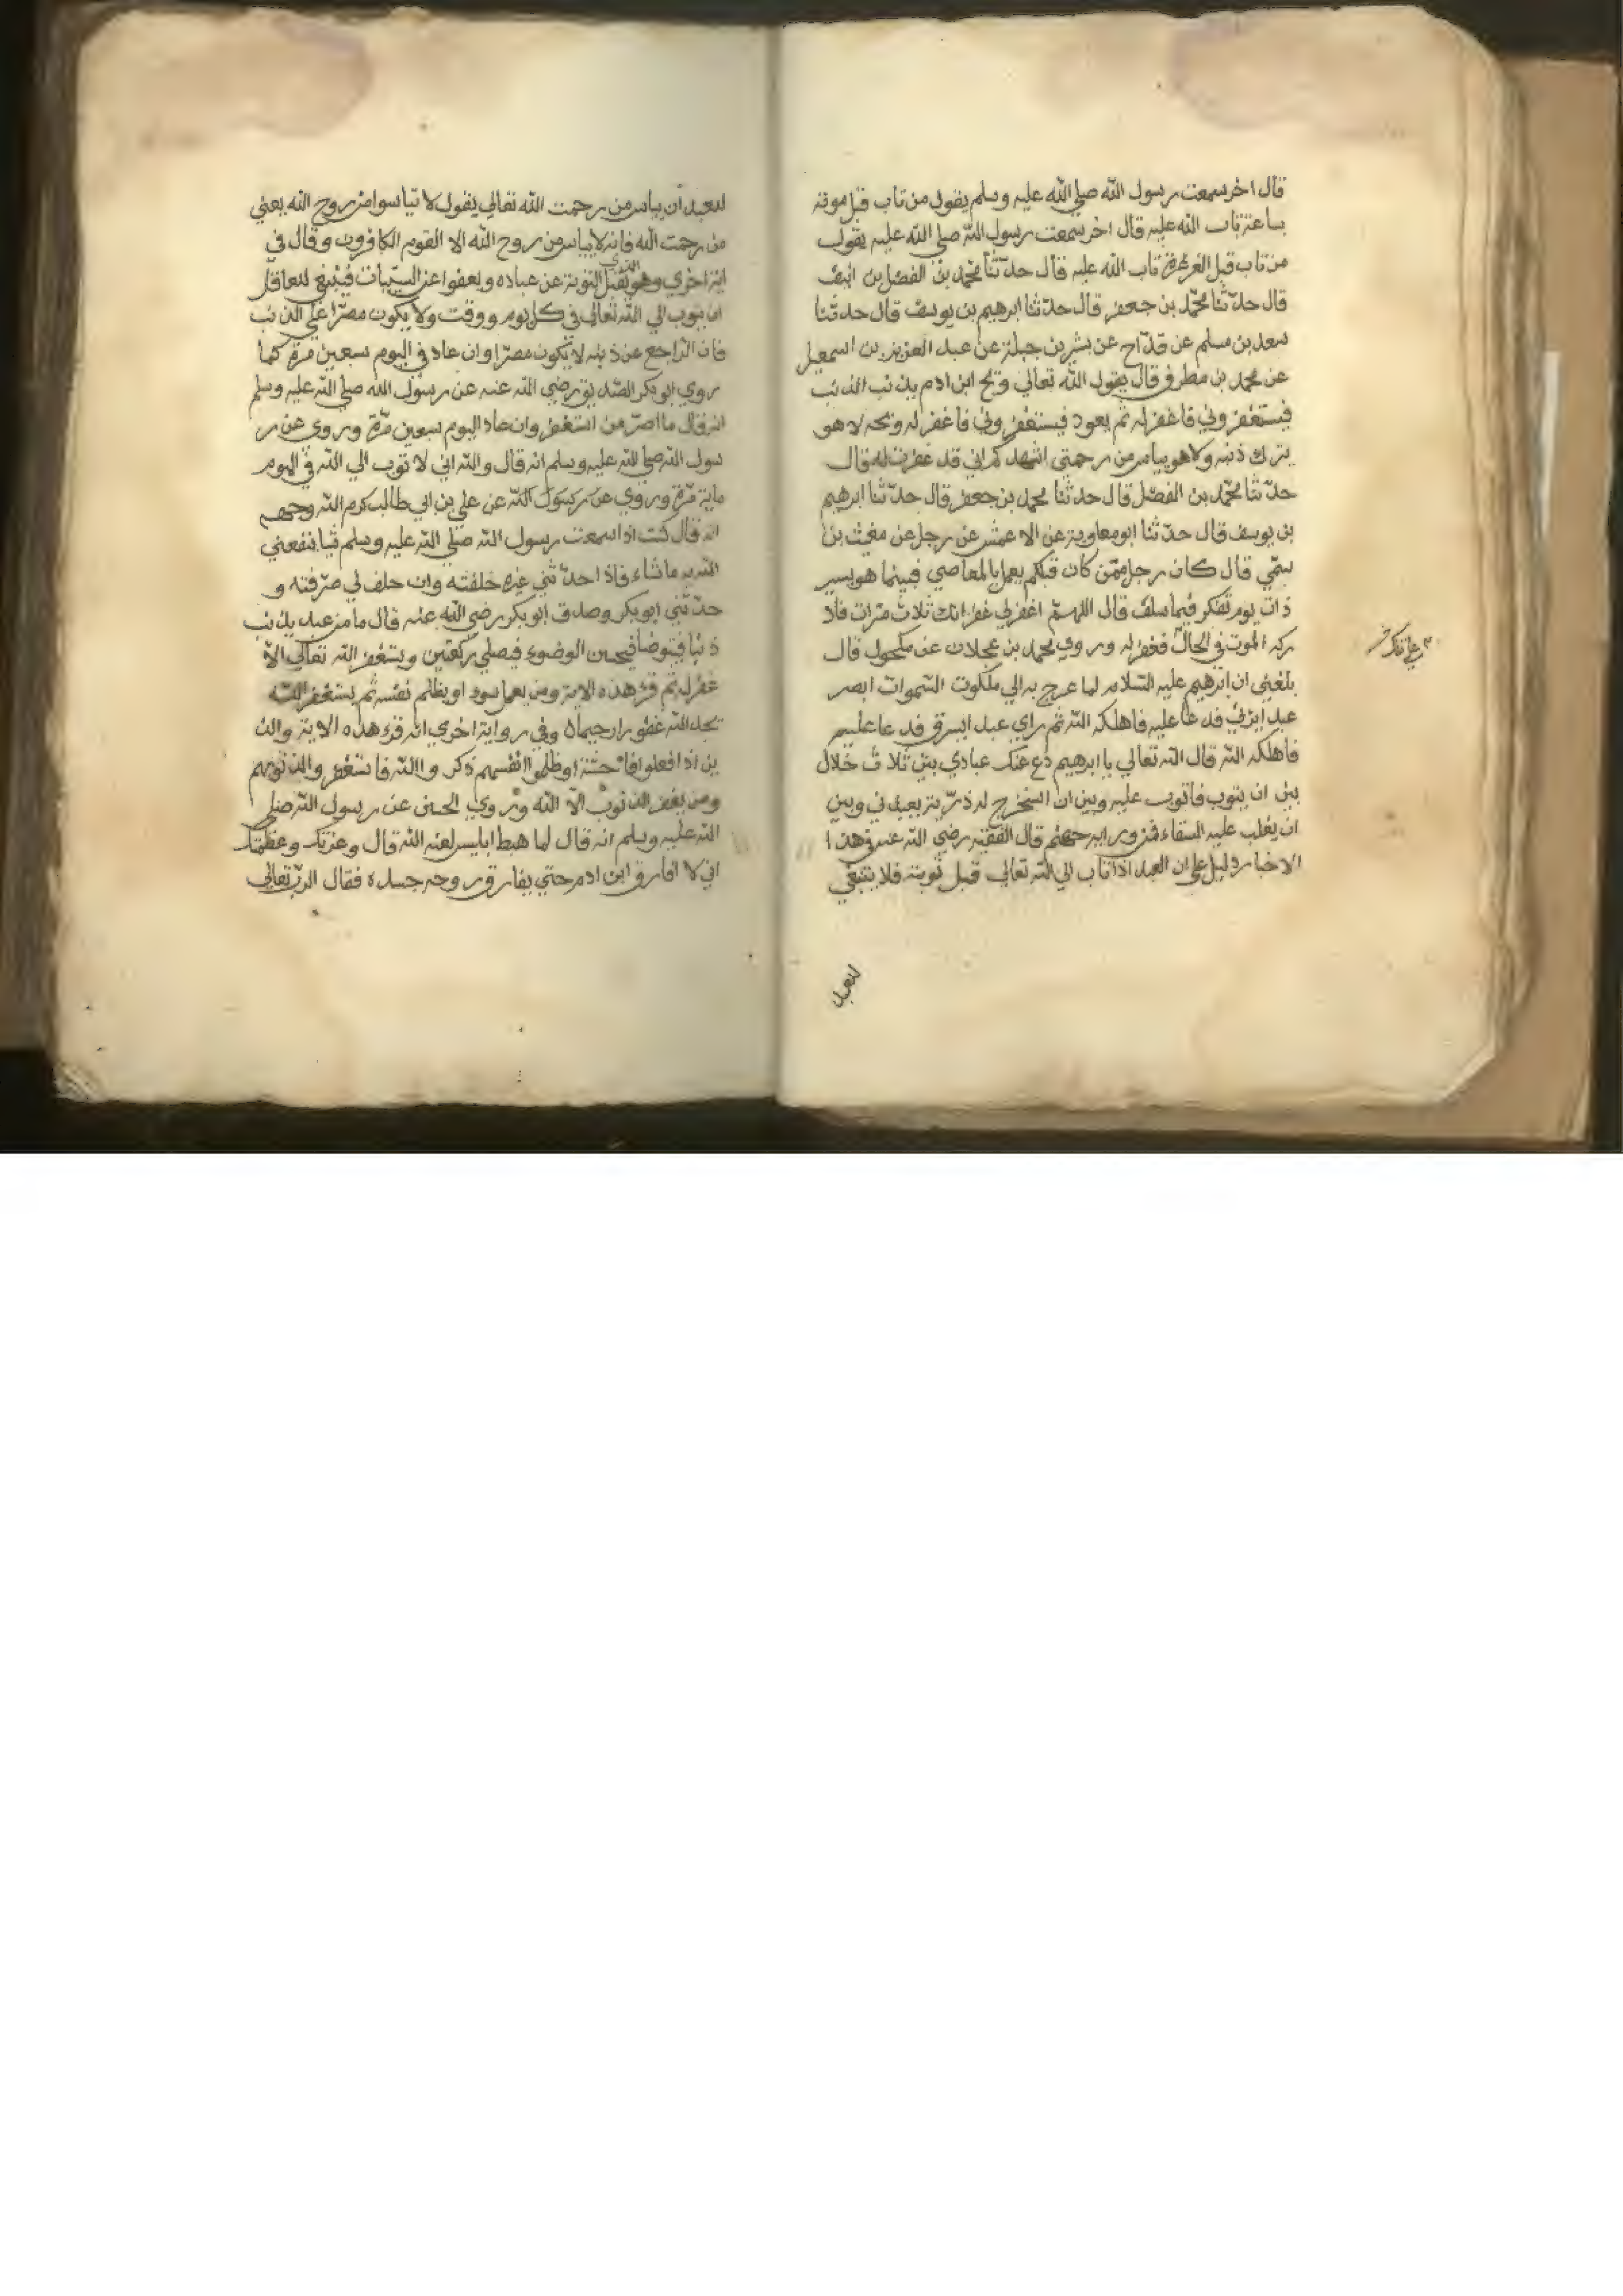 قال اخر سمعت رسول الله صلي الله عليه وسلم يقول من تاب قبل موته
بساعة تاب الله عليه قال اخر سمعت رسول الله صلي الله عليه يقول
من تاب قبل الغرغرة تاب الله عليه قال حدّثنا محمّد بن الفضل بن
قال حدّثنا محمّد بن جعفر قال حدّثنا ابرهيم بن يوسف قال حدثنا
سعد بن مسلم عن قدّاح عن بشر بن جبلة عن عبد العزيز بن اسمعيل
عن محمد بن مطرف قال يقول الله تعالي ويح ابن ادم يذنب الذنب
فيستغفروني فاغفر له ثم يعود فيستغفروني فاغفر له ويحه لا هو
يترك ذنبه ولا هو يياس من رحمتي اشهدكم اني قد غفرت له قال
حدّثنا محمّد بن الفضل قال حدثنا محمد بن جعفر قال حدّثنا ابرهيم
بن يوسف قال حدّثنا ابو معاوية عن الاعمش عن رجل عن مغيث بن
سمّي قال كان رجل ممّن كان قبلكم يعمل بالمعاصي فبينما هو يسير
ذات يوم تفكر فيما سلف قال اللهمّ اغفرلي غفرانك ثلاث مرّات فاد
ركه الموت في الحال فغفر له وروي محمد بن عجلان عن مكحول قال
بلغني ان ابرهيم عليه السّلام لما عرج به الي ملكوت السّموات ابصر
عبدا يزني فدعا عليه فاهلكه الله ثم راي عبدا يسرق فدعا عليه
فاهلكه الله قال الله تعالي يا ابرهيم دع عنك عبادي بين ثلاث خلال
بين ان يتوب فاتوب عليه وبين ان استخرج له ذرّية يعبدني وبين
ان يغلب عليه الشقاء فمن ورايه جهنم قال الفقيه رضي الله عنه وهذا
الاخبار دليل علي ان العبد اذا تاب الي الله تعالي قبل توبته فلا ينبغي
للعبد
للعبد ان يياس من رحمت الله تعالي يقول لا تياسوا من روح الله يعني
من رحمت الله فانه لا يياس من روح الله الا القوم الكافرون وقال في
اية اخري وهو الذي يقبل التوبة عن عباده ويعفوا عن السيّيات فينبغي للعاقل
ان يتوب الي الله تعالي في كل يوم ووقت ولا يكون مصرّا علي الذنب
فان الرّاجع عن ذنبه لا يكون مصرّا وان عاد في اليوم سبعين مرة كما
روي ابو بكر الصّديق رضي الله عنه عن رسول الله صلي الله عليه وسلم
انه قال ما اصرّ من استغفر وان عاد اليوم سبعين مرّة وروي عن ر
سول الله صلي الله عليه وسلم انه قال والله اني لا توب الي الله في اليوم
ماية مرّة وروي عن رسول الله عن علي بن ابي طالب كرم الله وجهه
انه قال كنت اذا سمعت رسول الله صلي الله عليه وسلم شيا ينفعني
الله به ما شاء فاذا حدّثني غيره حلفته وان حلف لي صدّقته و
حدّثني ابو بكر وصدق ابو بكر رضي الله عنه قال ما من عبد يذنب
ذنبا فيتوضا فيحسن الوضوء فيصلي ركعتين ويستغفر الله تعالي الا
غفر له ثم قرء هذه الاية ومن يعمل سوء او يظلم نفسه ثم يستغفر الله
يجد الله غفورا رحيما وفي رواية اخري انه قرء هذه الاية والذ
ين اذا فعلوا فاحشة او ظلموا انفسهم ذكروا الله فاستغفروا لذنوبهم
ومن يغفر الذنوب الا الله وروي الحسن عن رسول الله صلي
الله عليه وسلم انه قال لما هبط ابليس لعنه الله قال وعزتك وعظمتك
اني لا افارق ابن ادم حتي يفارق روحه جسده فقال الربّ تعالي